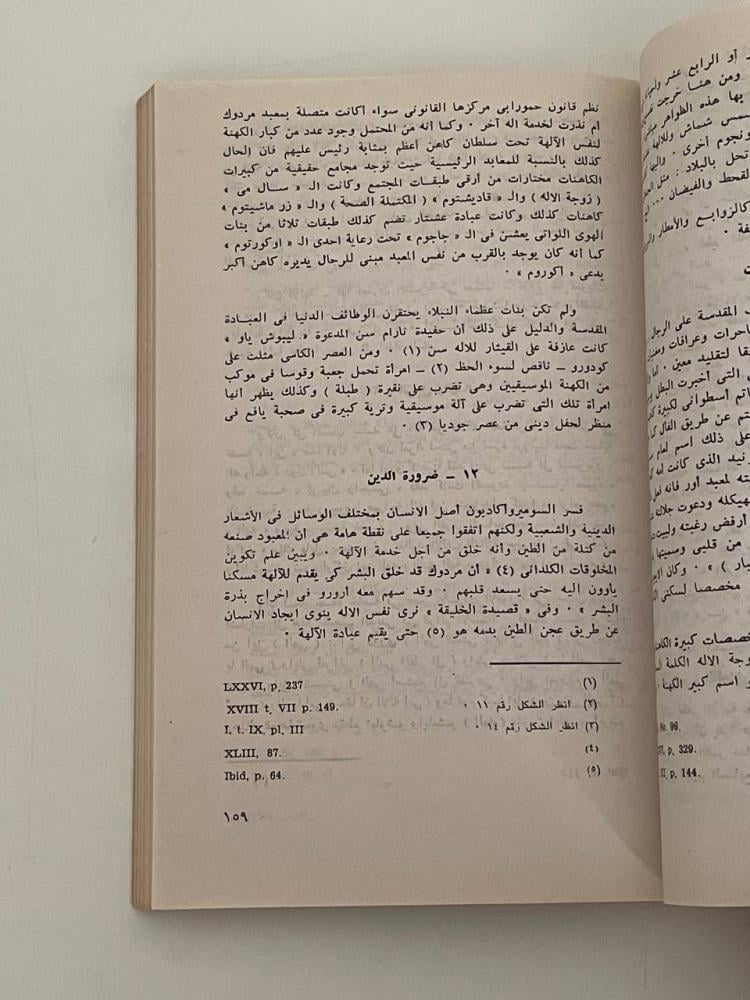 نظم قانون حمورابى مركزها القانونى سواء اكانت متصلة بمعبد مردوك
ام نذرت لخدمة اله آخر ٠ وكما انه من المحتمل وجود عدد من كبار الكهنة
لنفس الآلهة تحت سلطان كاهن أعظم بمثابة رئيس عليهم فان الحال
كذلك بالنسبة للمعابد الرئيسية حيث توجد مجامع حقيقية من كبيرات
الكاهنات مختارات من أرقى طبقات المجتمع وكانت الـ « سال مى »
( زوجة الاله ) والـ « قاديشتوم » ( المكتملة الصحة ) والـ « زر ماشيتوم »
كاهنات كذلك وكانت عبادة عشتار تضم كذلك طبقات ثلاثا من بنات
الهوى اللواتى يعشن فى الـ « جاجوم » تحت رعاية احدى الـ « اوكورتوم »
كما أنه كان يوجد بالقرب من نفس المعبد مبنى للرجال يديره كاهن أكبر
يدعى « اكوروم » ٠
ولم تكن بنات عظماء النبلاء يحتقرن الوظائف الدنيا فى العبادة
المقدسة والدليل على ذلك أن حفيدة نارام سن المدعوة « ليبوش ياو »
كانت عازفة على القيثار للاله سن (١) ٠ ومن العصر الكاسى مثلت على
كودورو ــ ناقص لسوء الحظ (٢) ــ امرأة تحمل جعبة وقوسا فى موكب
من الكهنة الموسيقيين وهى تضرب على نقيرة ( طبلة ) وكذلك يظهر أنها
امرأة تلك التى تضرب على آلة موسيقية وترية كبيرة فى صحبة يافع فى
منظر لحفل دينى من عصر جوديا (٣) ٠
١٢ ــ ضرورة الدين
فسر السوميرواكاديون أصل الانسان بمختلف الوسائل فى الأشعار
الدينية والشعبية ولكنهم اتفقوا جميعا على نقطة هامة هى أن المعبود صنعه
من كتلة من الطين وأنه خلق من أجل خدمة الآلهة ٠ ويبين علم تكوين
المخلوقات الكلدانى (٤) « أن مردوك قد خلق البشر كى يقدم للآلهة مسكنا
يأوون اليه حتى يسعد قلبهم ٠ وقد سهم معه أرورو فى اخراج بذرة
البشر » ٠ وفى « قصيدة الخليقة » نرى نفس الاله ينوى ايجاد الانسان
عن طريق عجن الطين بدمه هو (٥) حتى يقيم عبادة الآلهة ٠
(١) LXXVI, p. 237
(٢) انظر الشكل رقم ١١ ٠ XVIII t. VII p. 149.
(٣) انظر الشكل رقم ١٤ ٠ I, t. IX, pl, III
(٤) XLIII, 87.
(٥) Ibid, p. 64.
١٥٩
Nr. 96.
p. 329.
II, p. 144.